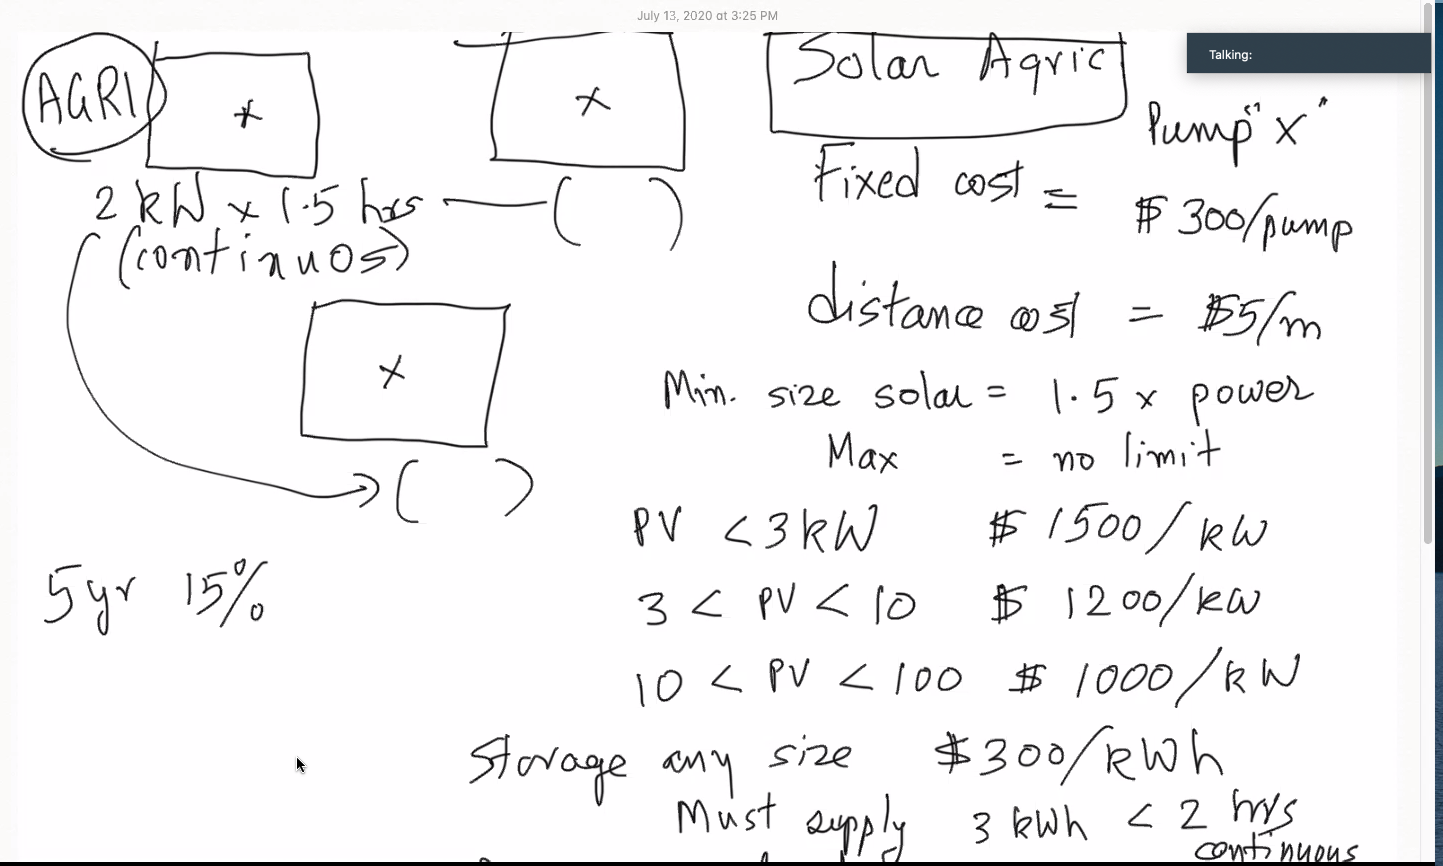 July 13, 2020 at 3:25 PM
Talking:
AGRI
x
x
2 kW x 1.5 hrs ( )
(continuos)
x
( )
5yr 15%
Solar Agric
Pump "X"
Fixed cost = $ 300/pump
distance cost = $5/m
Min. size solar = 1.5 x power
Max = no limit
PV < 3kW $ 1500/kW
3 < PV < 10 $ 1200/kW
10 < PV < 100 $ 1000/kW
Storage any size $300/kWh
Must supply 3 kWh < 2 hrs
continuous